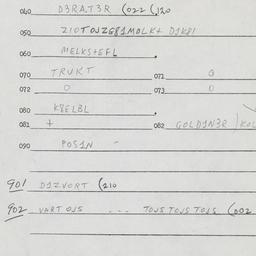 040 D3RAT3R (022 (J20
050 210TOJZG81MOLK+ D1K81
060 MELKS+EFL
070 TRUKT 071 0
072 0 073 0
080 K8ELBL
081 + 082 GOLD1N3R KOL
090 POS1N -
901 D1ZVORT (210
902 VART OJS --- TOJS TOJS TOJS (002